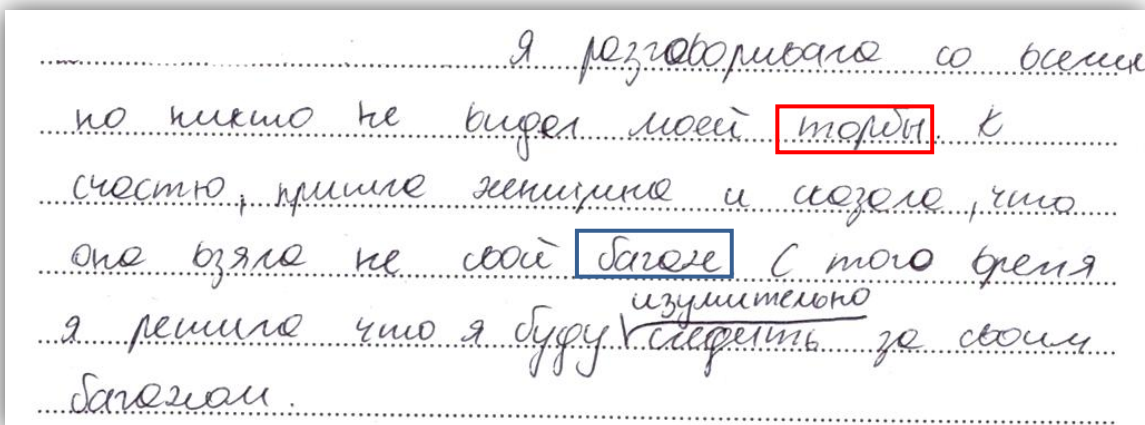 Я разговаривала со всеми
но никто не видел моей торбы. К
счастю, пришла женщина и сказала, что
она взяла не свой багаж С того время
я решила что я буду изумительно следить за своим
багажом.